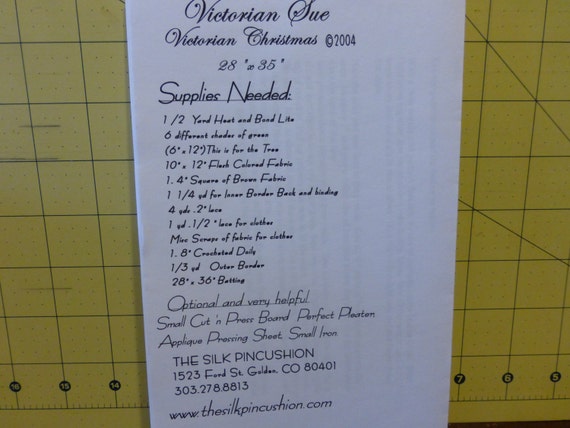 Victorian Sue
Victorian Christmas ©2004
28 "x 35"
Supplies Needed:
1 /2 Yard Heat and Bond Lite
6 different shades of green
(6" x 12") This is for the Tree
10" x 12" Flesh Colored Fabric
1. 4" Square of Brown Fabric
1 1/4 yd for Inner Border Back and binding
4 yds .2" lace
1 yd .1/2 " lace for clothes
Misc Scraps of fabric for clothes
1. 8" Crocheted Doily
1/3 yd Outer Border
28" x 36" Batting
Optional and very helpful
Small Cut 'n Press Board Perfect Pleater
Applique Pressing Sheet, Small Iron
THE SILK PINCUSHION
1523 Ford St. Golden, CO 80401
303.278.8813
www.thesilkpincushion.com
16 15 14 7 6 5